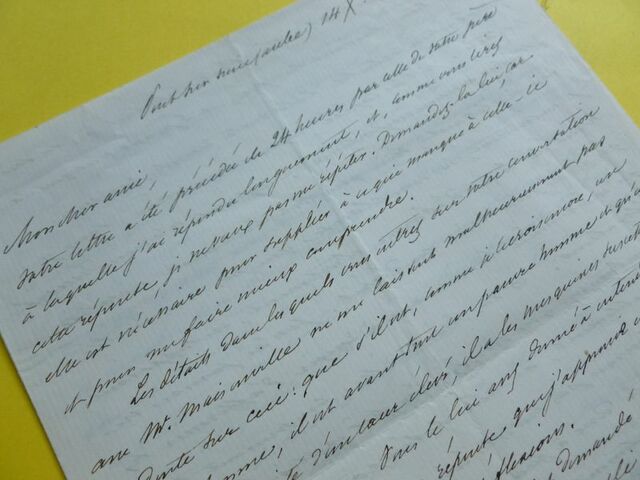 Pont sur seine (aube) 14 X.
Mon cher ami,
votre lettre a été précédée de 24 heures par celle de votre père
à laquelle j'ai répondu longuement, et, comme vous lirez
cette réponse, je ne veux pas me répéter. Demandez-la lui, car
elle est nécessaire pour suppléer à ce qui manque à celle-ci
et pour me faire mieux comprendre.
Les détails dans lesquels vous entrez sur votre conversation
avec Mr. Maisonville ne me laissent malheureusement pas
doute sur ceci: que s'il est, comme je le crois encore, un
homme, il est avant tout un pauvre homme et qu'
d'un cœur élevé, il a les mesquines
Vous le lui avez donné à entendre
réponse qui j'apprends
réflexions.
demandé